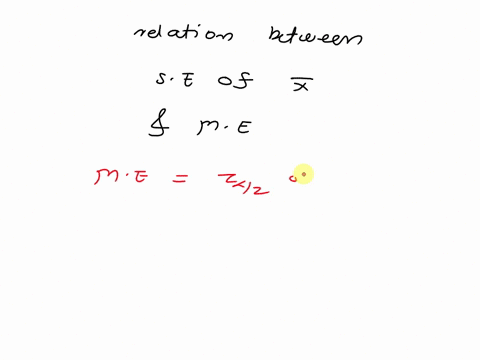 relation between
S.E of x̄
& M.E
M.E = z α/2